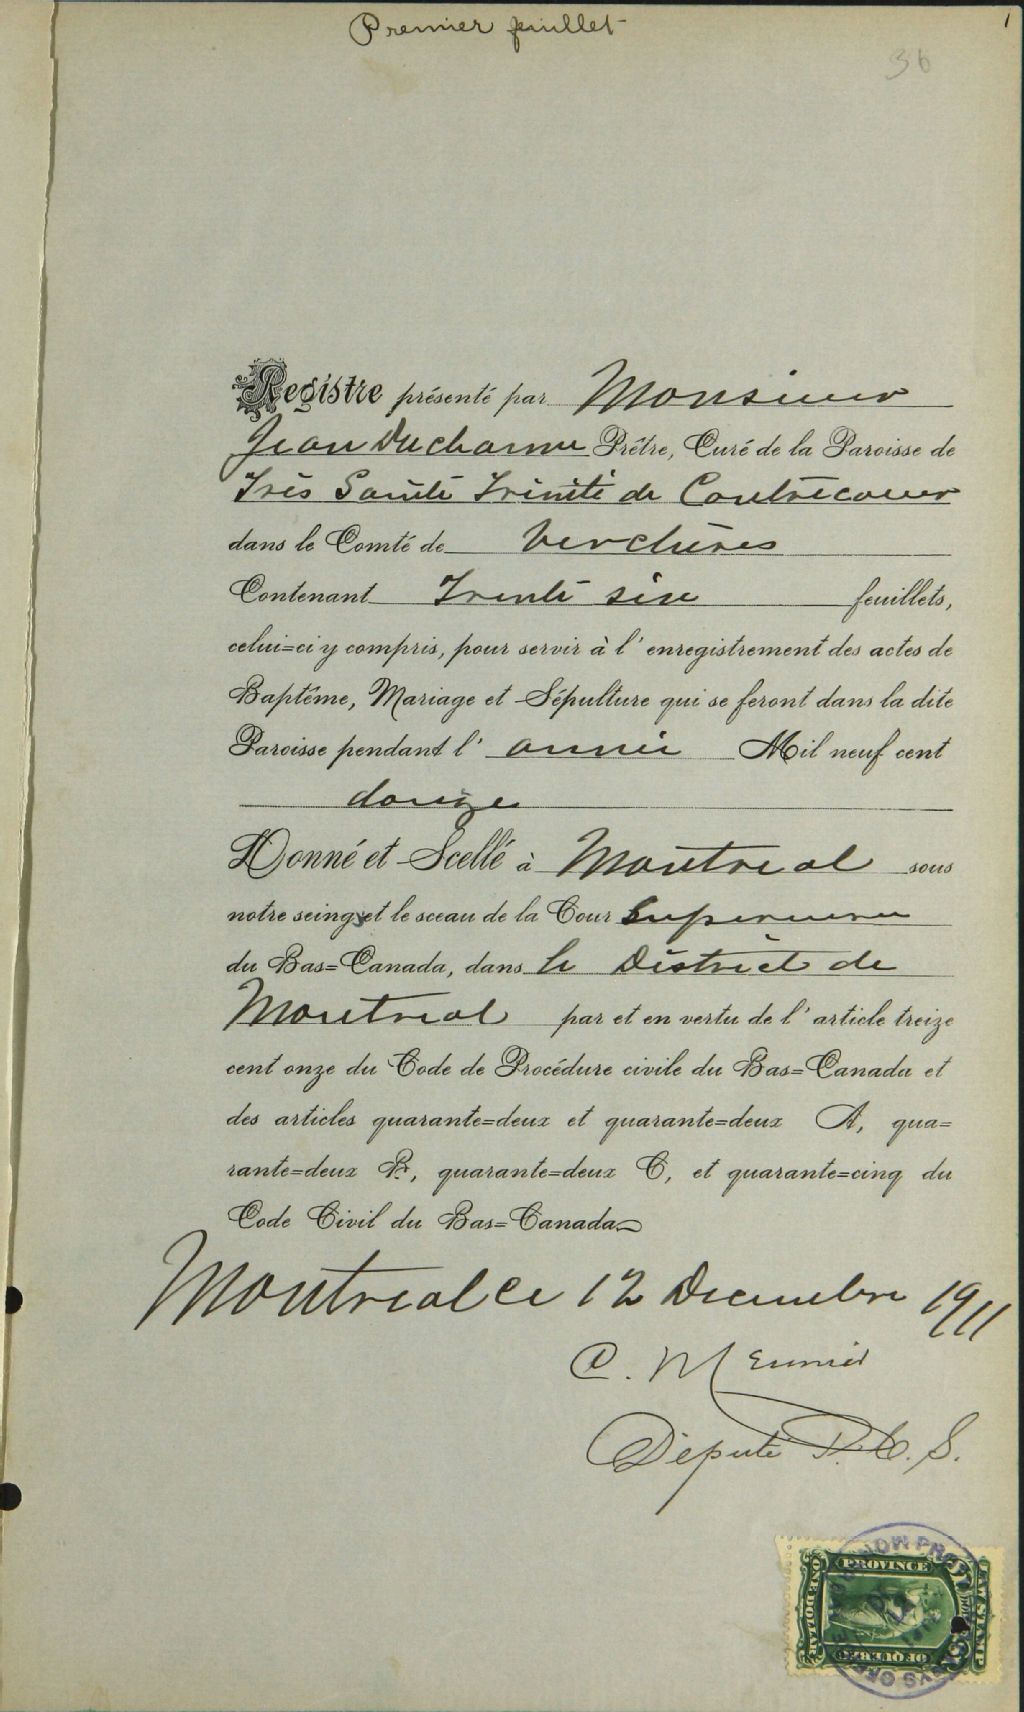 Premier feuillet
1
36
Registre présenté par Monsieur
Jean Ducharme Prêtre, Curé de la Paroisse de
Très Sainte Trinité de Contrecoeur
dans le Comté de Verchères
Contenant Trente six feuillets,
celui=ci y compris, pour servir à l'enregistrement des actes de
Baptême, Mariage et Sépulture qui se feront dans la dite
Paroisse pendant l'année Mil neuf cent
douze
Donné et Scellé à Montreal sous
notre seing et le sceau de la Cour Superieure
du Bas=Canada, dans le District de
Montreal par et en vertu de l'article treize
cent onze du Code de Procédure civile du Bas=Canada et
des articles quarante=deux et quarante=deux A, qua=
rante=deux B, quarante=deux C, et quarante=cinq du
Code Civil du Bas=Canada
Montreal ce 12 Decembre 1911
C. Meunier
Député P. C. S.
PROVINCE
OF QUEBEC
ONE DOLLAR
LAW STAMP